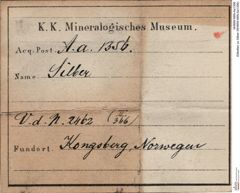 K. K. Mineralogisches Museum.
Acq. Post. A.a. 1356.
Name: Silber
V. d. N. 2462
Fundort. Kongsberg, Norwegen